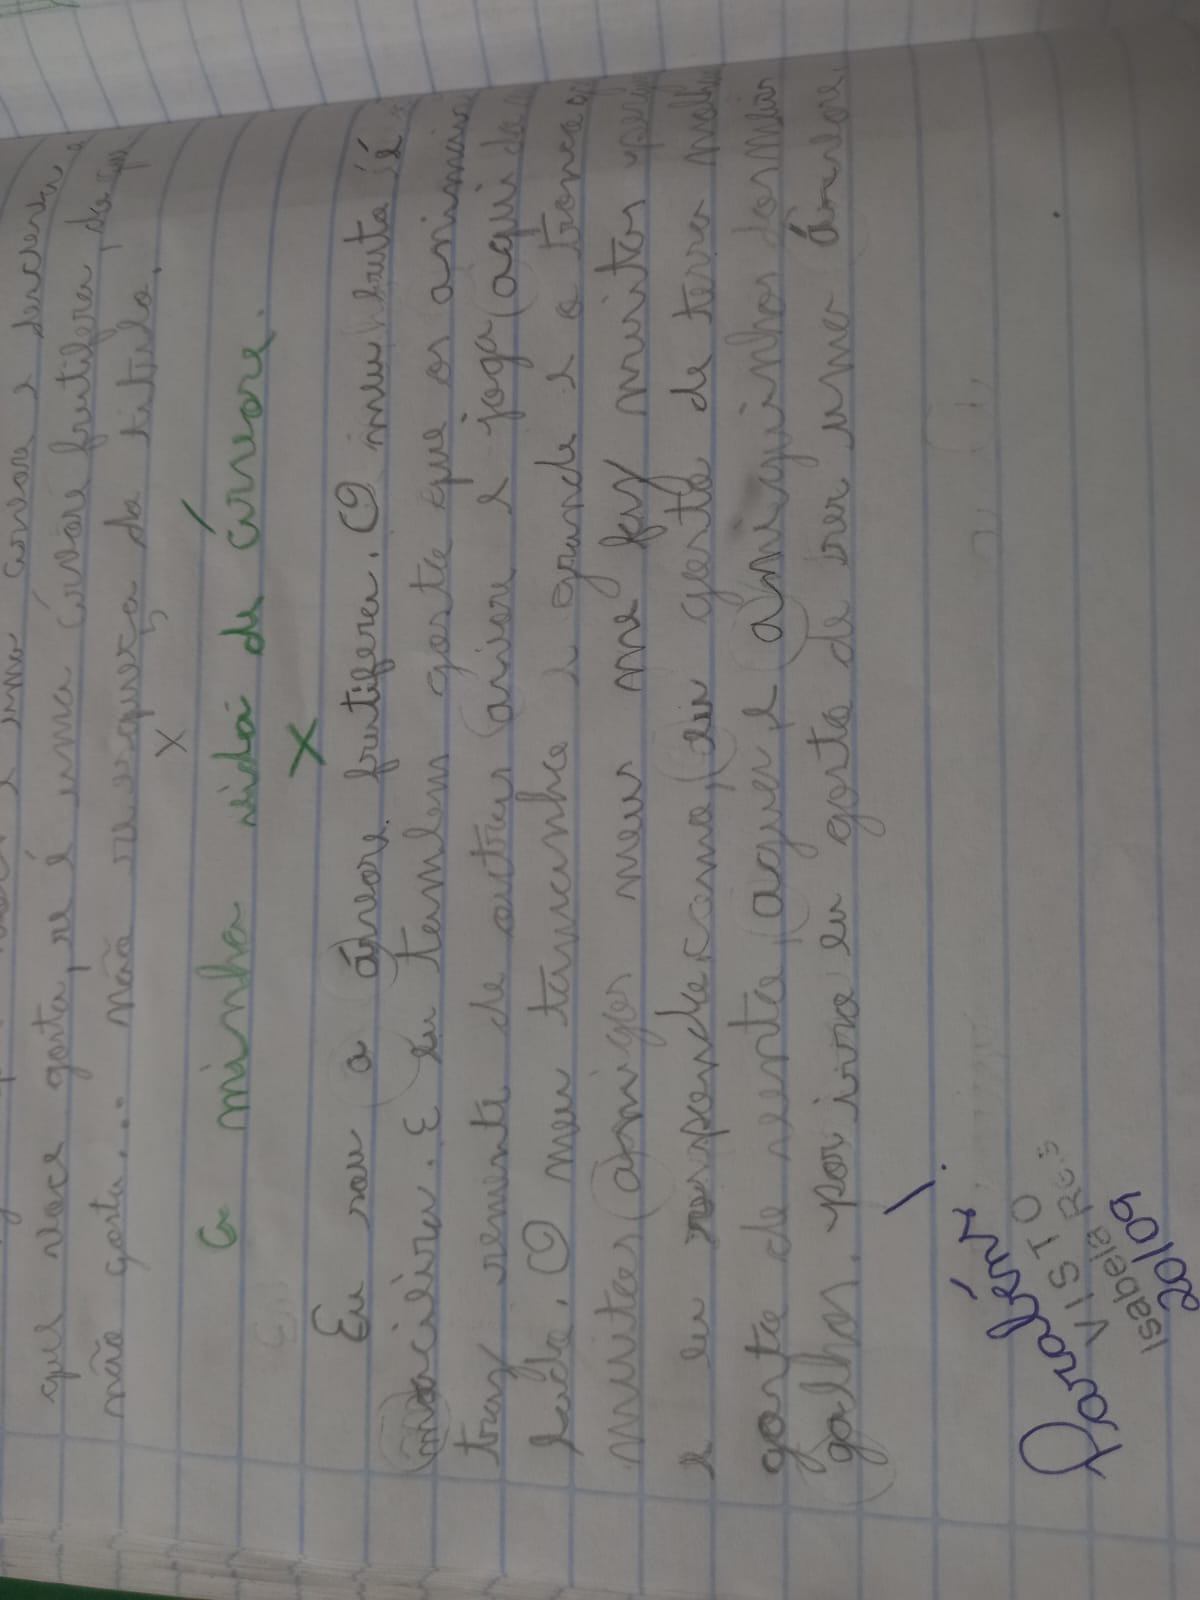 uma arvore e descreva o
que voce gosta, se é uma árvore frutifera, do que
não gosta... não se esqueça do título.
a minha vida de árvore.
Eu sou a árvore frutifera. O meu fruto é
macieira. E eu tambem gosto que os animais
traz semente de outras arvore e joga aqui do
lado. O meu tamanho e grande e o tronco
muitos amigos meus me fez muitas
e eu respondo, como, eu gosto de terra molha
gosto de vento, agua, e amiguinhos dormir
galhos. por isso eu gosto de ser uma árvore.
Parabéns
VISTO
Isabela R.S
20/09